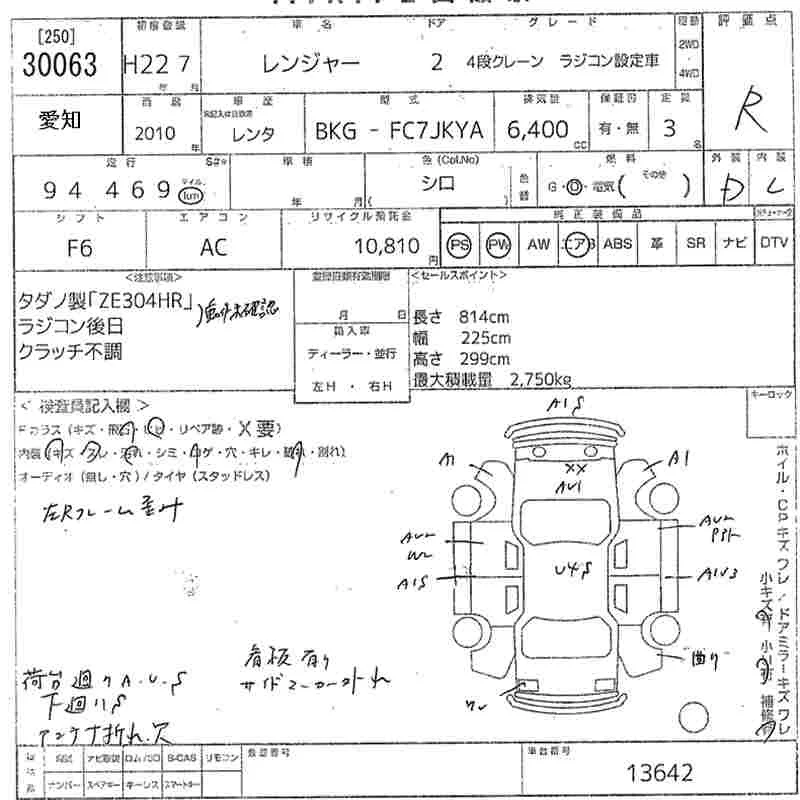 [250]
30063
初度登録
H22 7
年 月
車名
レンジャー
ドア
2
グレード
4段クレーン ラジコン設定車
駆動
2WD
4WD
評価点
R
愛知
2010
年
車歴
レンタ
型式
BKG - FC7JKYA
排気量
6,400
CC
保証書
有・無
定員
3
名
走行
94 469
マイル
km
車検
年 月
色(Col.No)
シロ
色替
燃料
G・D・電気( その他 )
外装
D
内装
L
シフト
F6
エアコン
AC
リサイクル預託金
10,810 円
純正装備品
PS PW AW エアB ABS 革 SR ナビ DTV
<注意事項>
タダノ製「ZE304HR」
動作未確認
ラジコン後日
クラッチ不調
登録書類有効期限
月 日
輸入車
ディーラー・並行
左H ・ 右H
<セールスポイント>
長さ 814cm
幅 225cm
高さ 299cm
最大積載量 2,750kg
< 検査員記入欄 >
Fガラス(キズ・飛石・ヒビ・リペア跡・X要)
内装(キズ・スレ・汚れ・シミ・コゲ・穴・キレ・破れ・割れ)
オーディオ(無し・穴)/タイヤ(スタッドレス)
左Rフレーム歪み
荷台廻りA.U.S
下廻りS
アンテナ折れ.穴
看板有り
サイドマーカー外れ
キーロック
A1S
A1
A1
XX
AU1
AU2
W2
A1S
U4S
AU2
A1U3
曲り
ワレ
ホイル・CPキズワレ/ドアミラーキズワレ
小キズ有 小凹有 補修有
ナビ取説 ロム/CD B-CAS リモコン
ナンバー スペアキー キーレス スマートキー
登録番号
車台番号
13642